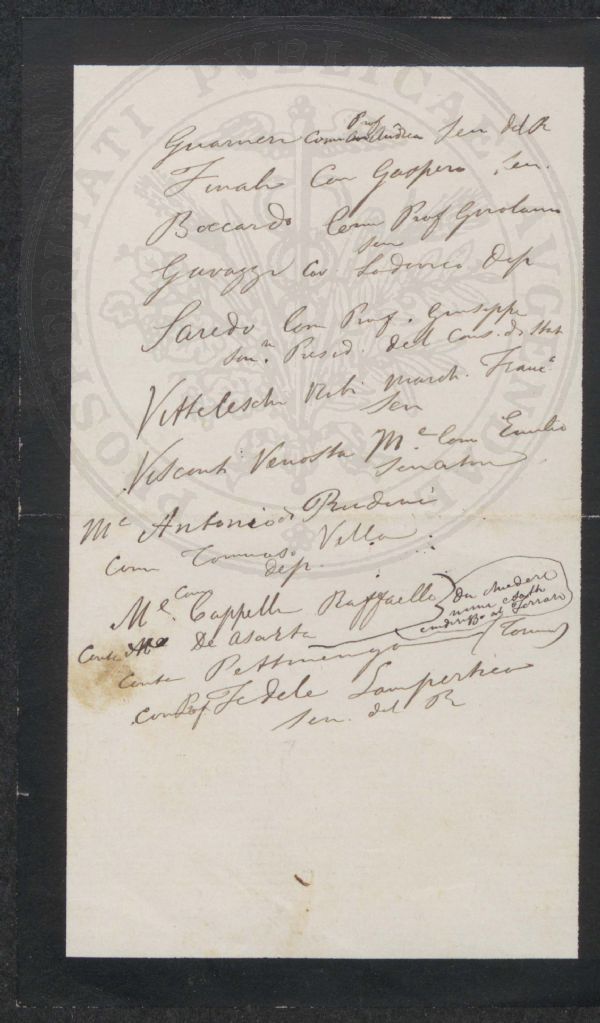 Guarneri Com Prof Andrea Sen del R
Finali Cav Gaspero Sen.
Boccardo Com Prof Girolamo
sen
Gavazzi Cav Lodovico Dep
Saredo Com Prof. Giuseppe
Sen. Presid. del Cons. di Stato
Vitteleschi Nobi March. Franc
Sen
Visconti Venosta M.e Com Emilio
Senatore
M.e Antonio di Rudinì
Com Tommaso Villa
dep.
M.e Cav Cappelli Raffaello
Da chiedere
nomi esatti
indirizzo al Ferraris
Conte De Asarta
Conte Pettinengo (Torino)
Com Prof Fedele Lampertico
Sen. del R